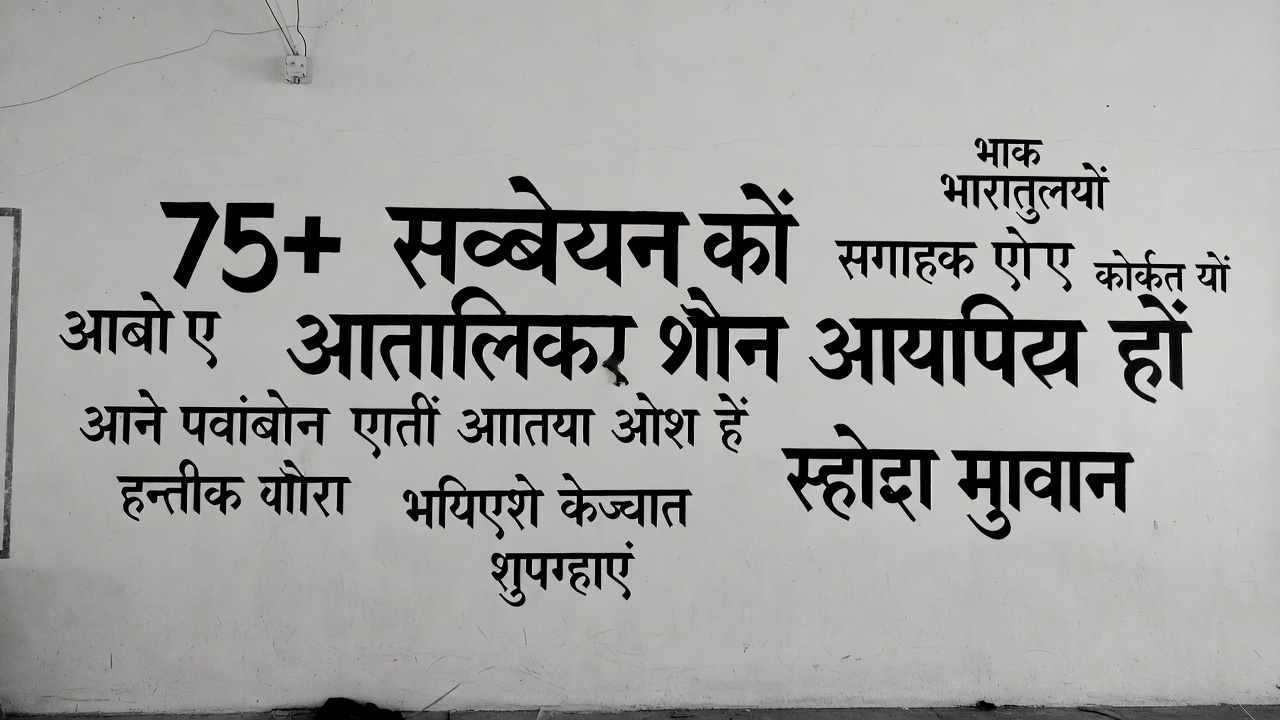 भाक
भारातुलयों
75+ सव्बेयन कों
सगाहक ऐए कोर्कत यों
आबो ए
आतालिकर शौन आयापिस्र हों
आने पवांबोन एातीं आातया ओश हें
स्होद्दा मुावान
हन्तीक यौरा
भयिएशे केज्चात
शुपग्हाएं